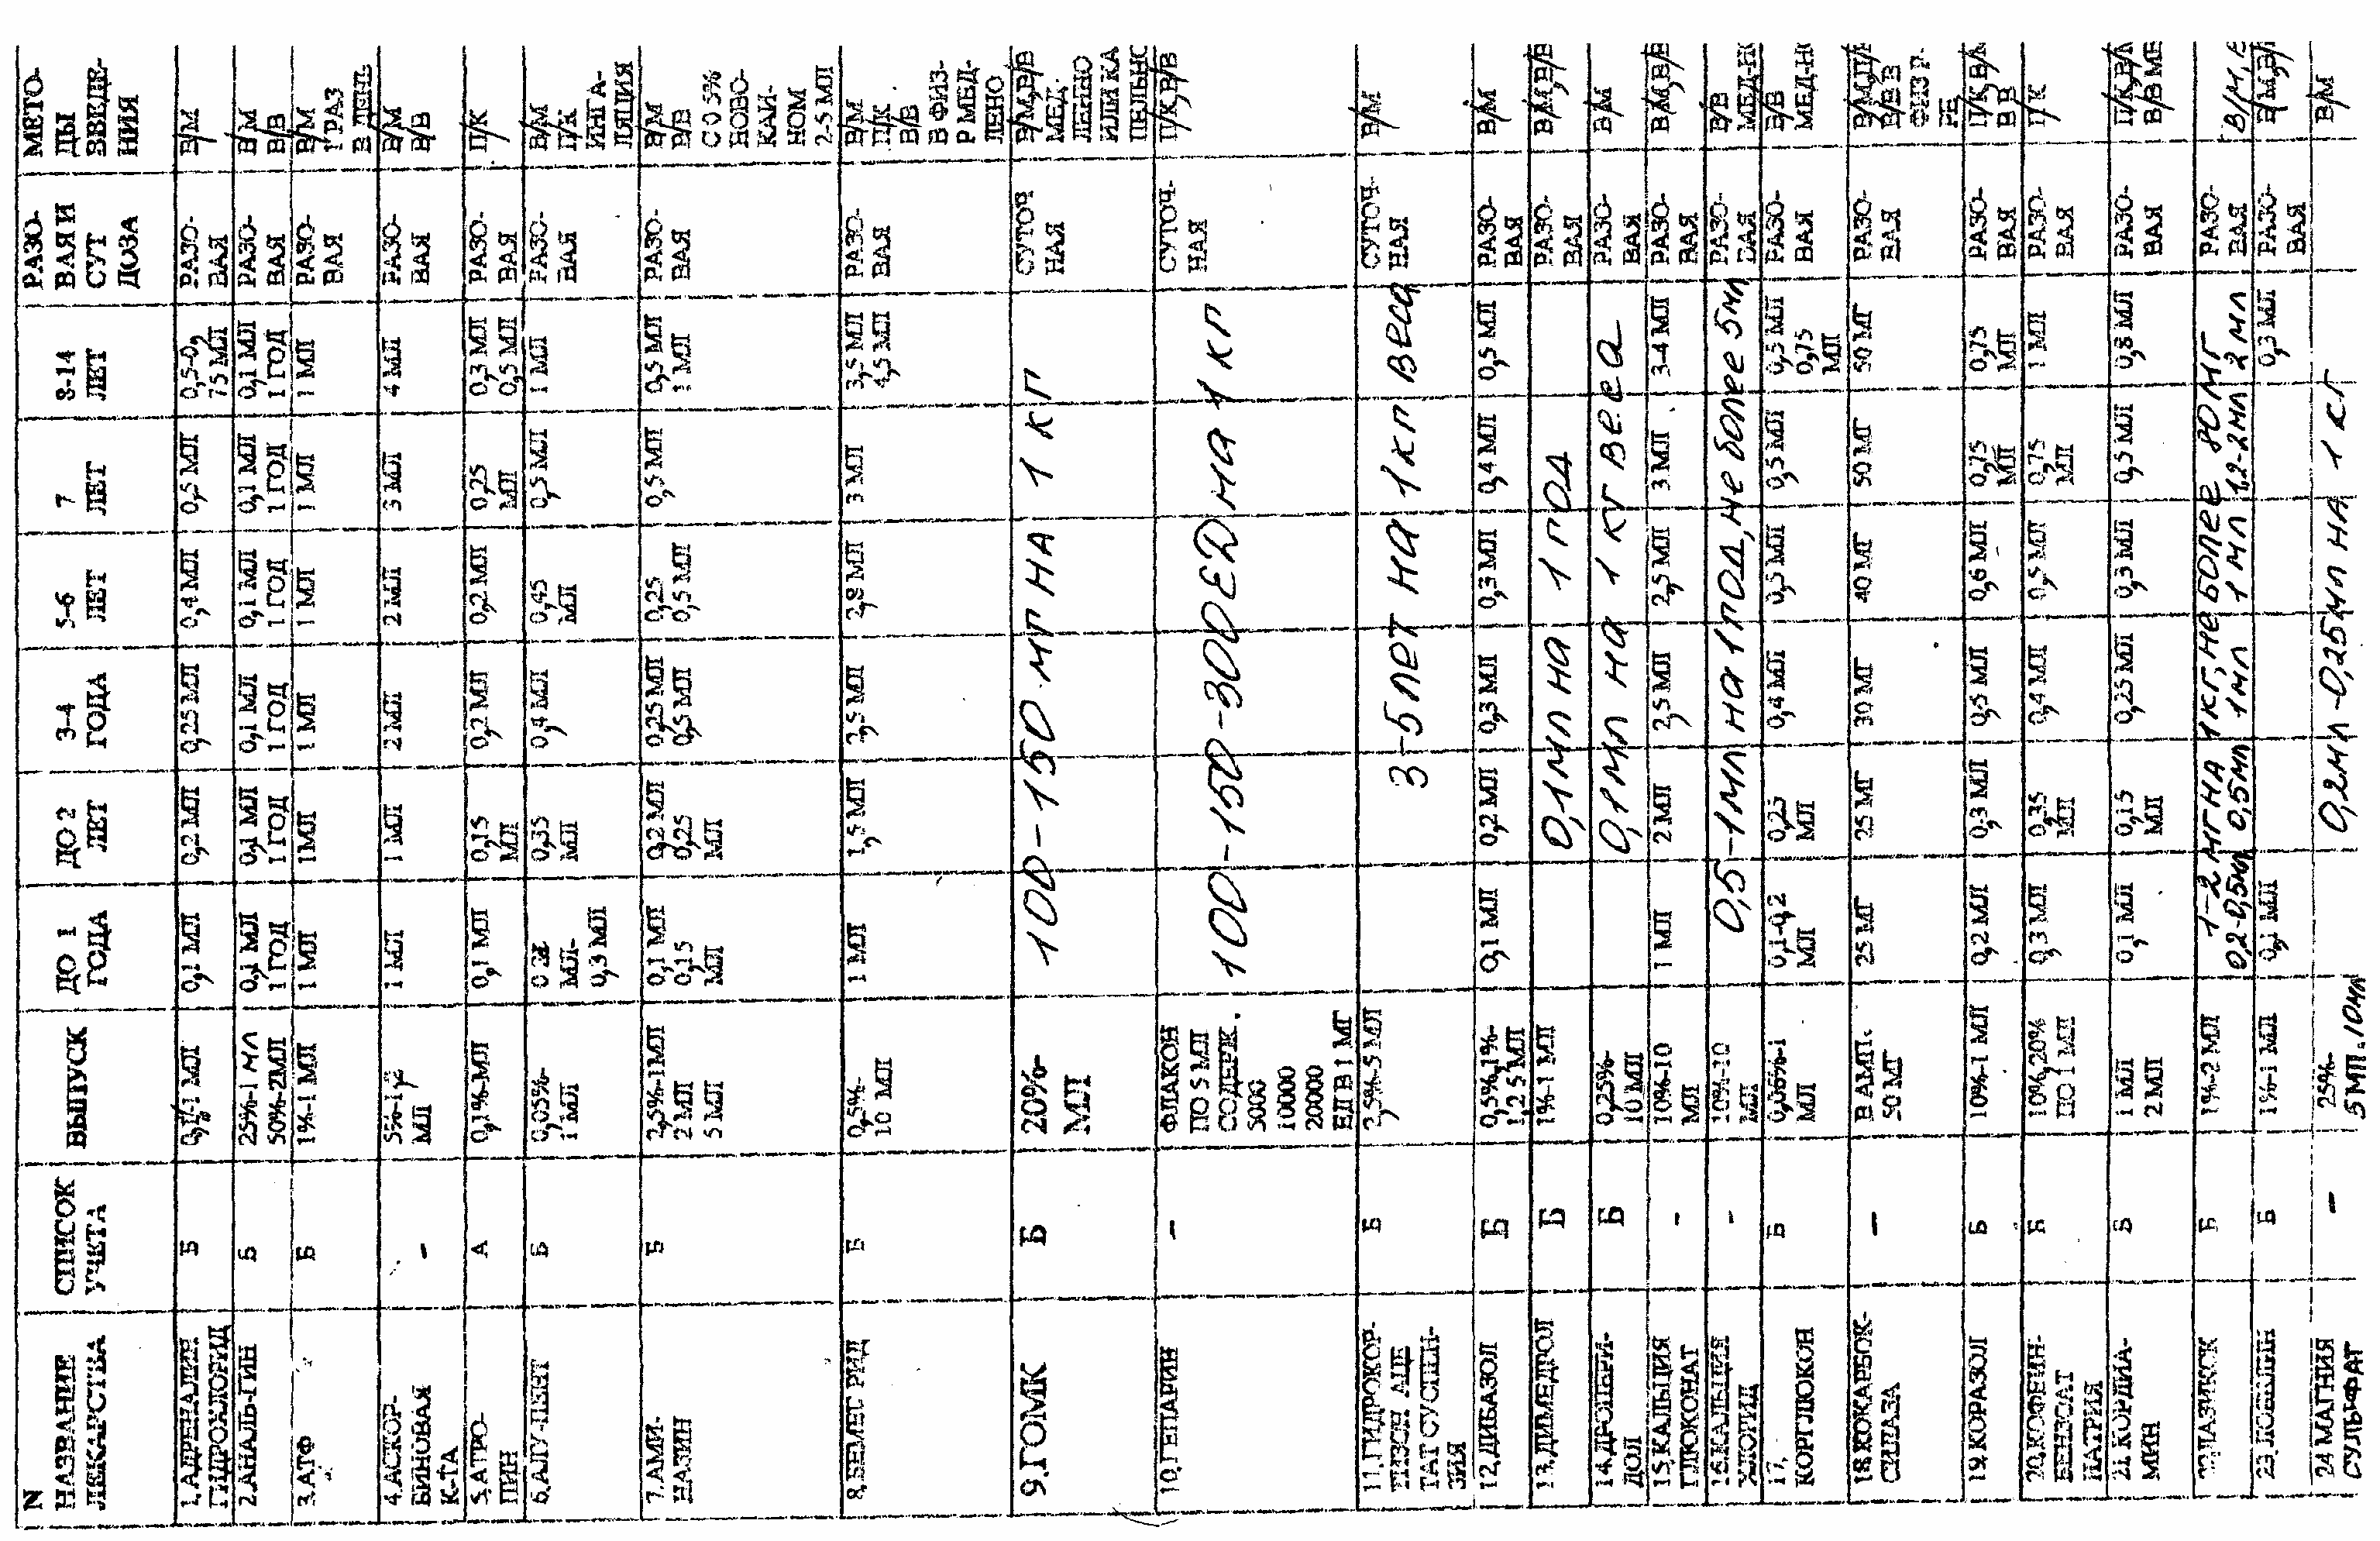 N НАЗВАНИЕ ЛЕКАРСТВА | СПИСОК УЧЕТА | ВЫПУСК | ДО 1 ГОДА | ДО 2 ЛЕТ | 3-4 ГОДА | 5-6 ЛЕТ | 7 ЛЕТ | 8-14 ЛЕТ | РАЗО-ВАЯ И СУТ ДОЗА | МЕТО-ДЫ ВВЕДЕ-НИЯ
1.АДРЕНАЛИН. ГИДРОХЛОРИД | Б | 0,1%-1 МЛ | 0,1 МЛ | 0,2 МЛ | 0,25 МЛ | 0,4 МЛ | 0,5 МЛ | 0,5-0,75 МЛ | РАЗО-ВАЯ | В/М
2.АНАЛЬ-ГИН | Б | 25%-1 мл 50%-2МЛ | 0,1 МЛ 1 ГОД | 0,1 МЛ 1 ГОД | 0,1 МЛ 1 ГОД | 0,1 МЛ 1 ГОД | 0,1 МЛ 1 ГОД | 0,1 МЛ 1 ГОД | РАЗО-ВАЯ | В/М В/В
3.АТФ | Б | 1%-1 МЛ | 1 МЛ | 1МЛ | 1 МЛ | 1 МЛ | 1 МЛ | 1 МЛ | РАЗО-ВАЯ | В/М 1 РАЗ В ДЕНЬ
4.АСКОР-БИНОВАЯ К-ТА | - | 5%-1,2 МЛ | 1 МЛ | 1 МЛ | 2 МЛ | 2 МЛ | 3 МЛ | 4 МЛ | РАЗО-ВАЯ | В/М В/В
5.АТРО-ПИН | А | 0,1%-МЛ | 0,1 МЛ | 0,15 МЛ | 0,2 МЛ | 0,2 МЛ | 0,25 МЛ | 0,3 МЛ 0,5 МЛ | РАЗО-ВАЯ | П/К
6.АЛУ-ПЕНТ | Б | 0,05%-1 МЛ | МЛ-0,3 МЛ | 0,35 МЛ | 0,4 МЛ | 0,45 МЛ | 0,5 МЛ | 1 МЛ | РАЗО-ВАЯ | В/М П/К ИНГА-ЛЯЦИЯ
7.АМИ-НАЗИН | Б | 2,5%-1МЛ 2 МЛ 5 МЛ | 0,1 МЛ 0,15 МЛ | 0,2 МЛ 0,25 МЛ | 0,25 МЛ 0,5 МЛ | 0,25 0,5 МЛ | 0,5 МЛ | 0,5 МЛ 1 МЛ | РАЗО-ВАЯ | В/М В/В С 0 5% НОВО-КАИ-НОМ 2-5 МЛ
8.БЕМЕГ РИД | Б | 0,5%-10 МЛ | 1 МЛ | 1,5 МЛ | 2,5 МЛ | 2,8 МЛ | 3 МЛ | 3,5 МЛ 4,5 МЛ | РАЗО-ВАЯ | В/М П/К В/В В ФИЗ-Р МЕД-ЛЕНО
9.ГОМК | Б | 20%-МЛ | 100-150 мг НА 1 кг | СУТОЧ НАЯ | В/М,В/В МЕД-ЛЕННО ИЛИ КА ПЕЛЬНО
10.ГЕПАРИН | - | ФЛАКОН ПО 5 МЛ СОДЕРЖ. 5000 10000 20000 ЕД В 1 МГ | 100-150-300 ЕД на 1 кг | СУТОЧ-НАЯ | П/К,В/В
11.ГИДРОКОР-ТИЗОН АЦЕ ТАТ СУСПЕН-ЗИЯ | Б | 2,5%-5 МЛ | 3-5 лет на 1 кг веса | СУТОЧ-НАЯ | В/М
12.ДИБАЗОЛ | Б | 0,5%,1%-1,2 5 МЛ | 0,1 МЛ | 0,2 МЛ | 0,3 МЛ | 0,3 МЛ | 0,4 МЛ | 0,5 МЛ | РАЗО-ВАЯ | В/М
13.ДИМЕДРОЛ | Б | 1%-1 МЛ | 0,1 мл на 1 год | РАЗО-ВАЯ | В/М,В/В
14.ДРОПЕРИ-ДОЛ | Б | 0,25%-10 МЛ | 0,1 мл на 1 кг веса | РАЗО-ВАЯ | В/М
15.КАЛЬЦИЯ ГЛЮКОНАТ | - | 10%-10 МЛ | 1 МЛ | 2 МЛ | 2,5 МЛ | 2,5 МЛ | 3 МЛ | 3-4 МЛ | РАЗО-ВАЯ | В/М,В/В
16.КАЛЬЦИЯ ХЛОРИД | - | 10%-10 МЛ | 0,5-1мл на 1 год, не более 5 мл | РАЗО-ВАЯ | В/В МЕД-Н
17. КОРГЛЮКОН | Б | 0,06%-1 МЛ | 0,1-0,2 МЛ | 0,25 МЛ | 0,4 МЛ | 0,5 МЛ | 0,5 МЛ | 0,5 МЛ 0,75 МЛ | РАЗО-ВАЯ | В/В МЕД-Н
18.КОКАРБОК-СИЛАЗА | - | В АМП. 50 МГ | 25 МГ | 25 МГ | 30 МГ | 40 МГ | 50 МГ | 50 МГ | РАЗО-ВАЯ | В/В В ФИЗ Р-РЕ
19. КОРАЗОЛ | Б | 10%-1 МЛ | 0,2 МЛ | 0,3 МЛ | 0,5 МЛ | 0,6 МЛ | 0,75 МЛ | 0,75 МЛ | РАЗО-ВАЯ | П/К,В/М ВВ
20.КОФЕИН-БЕНЗОАТ НАТРИЯ | Б | 10%,20% ПО 1 МЛ | 0,3 МЛ | 0,35 МЛ | 0,4 МЛ | 0,5 МЛ | 0,75 МЛ | 1 МЛ | РАЗО-ВАЯ | П/К
21 КОРДИА-МИН | Б | 1 МЛ 2 МЛ | 0,1 МЛ | 0,15 МЛ | 0,25 МЛ | 0,3 МЛ | 0,5 МЛ | 0,8 МЛ | РАЗО-ВАЯ | П/К,В/М В/В МЕ
22.ЛАЗИКСК | Б | 1%-2 МЛ | 1-2 мг НА 1 кг, не более 80 мг 0,2-0,5мл 0,5мл 1мл 1 мл 1,2-2мл 2 мл | РАЗО-ВАЯ | В/М,
23. ЛОБЕЛИН | Б | 1%-1 МЛ | 0,1 МЛ | 0,3 МЛ | РАЗО-ВАЯ | В/М,В/
24 МАГНИЯ СУЛЬФАТ | - | 25%-5 МЛ. 10мл | 0,2мл-0,25мл НА 1 кг | В/М